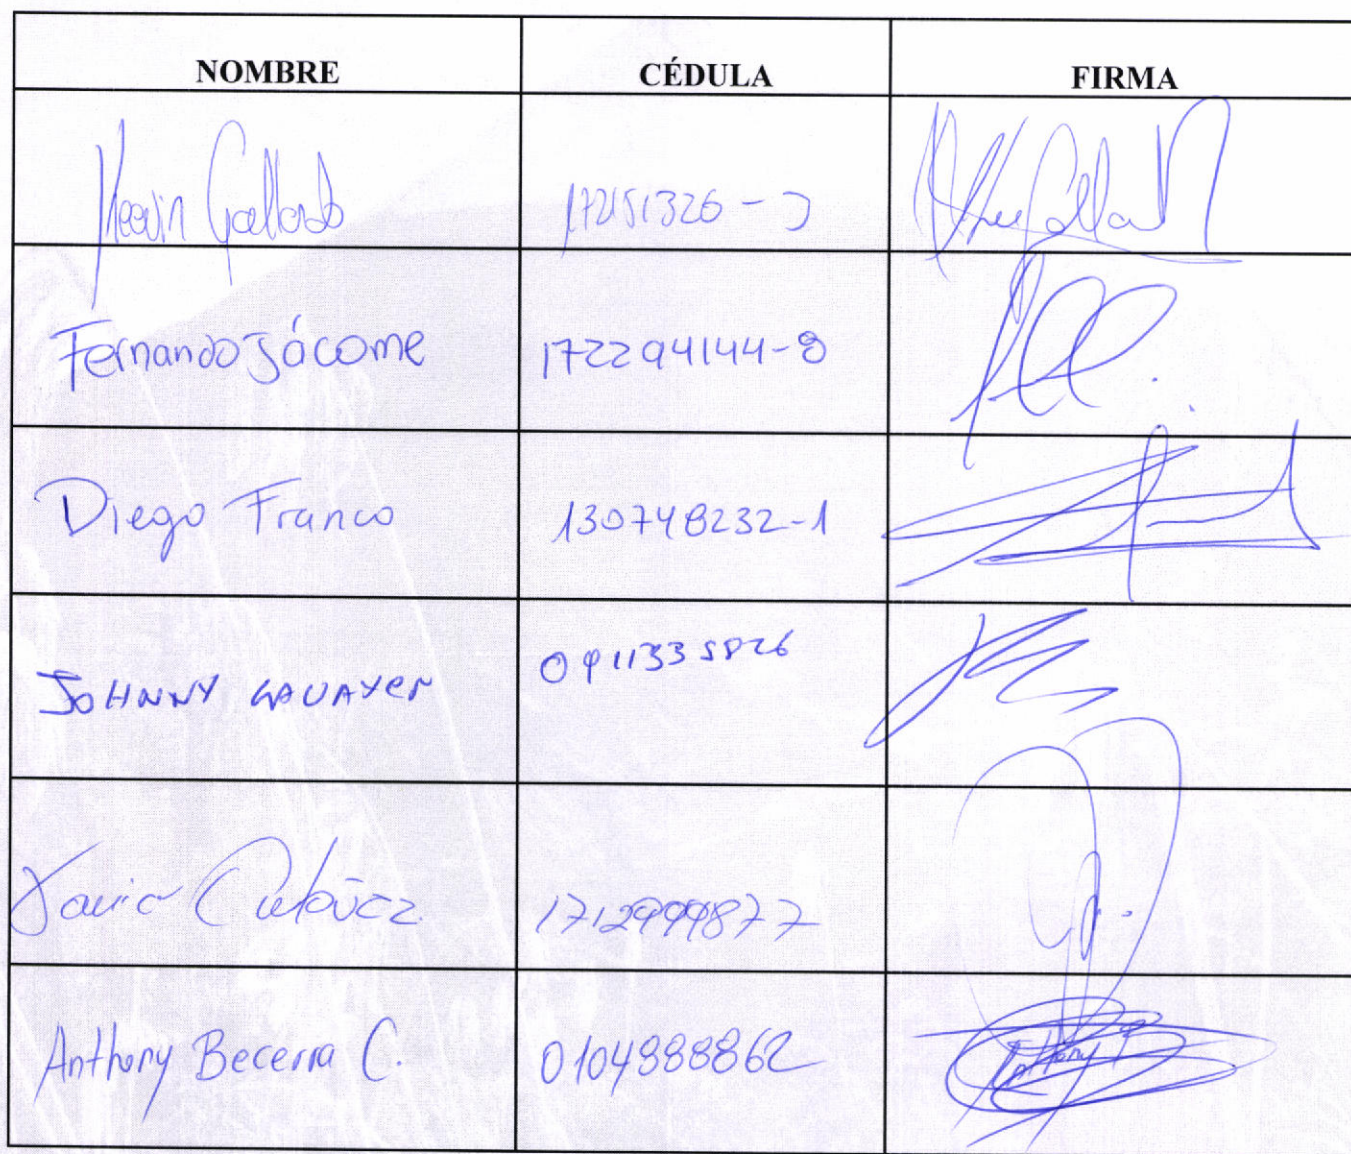 NOMBRE CÉDULA FIRMA
Kevin Gallardo
Fernando Jácome 172294144-8
Diego Franco 130748232-1
JOHNNY 0911335826
1712999877
Anthony Becerra C. 0104888862 Anthony